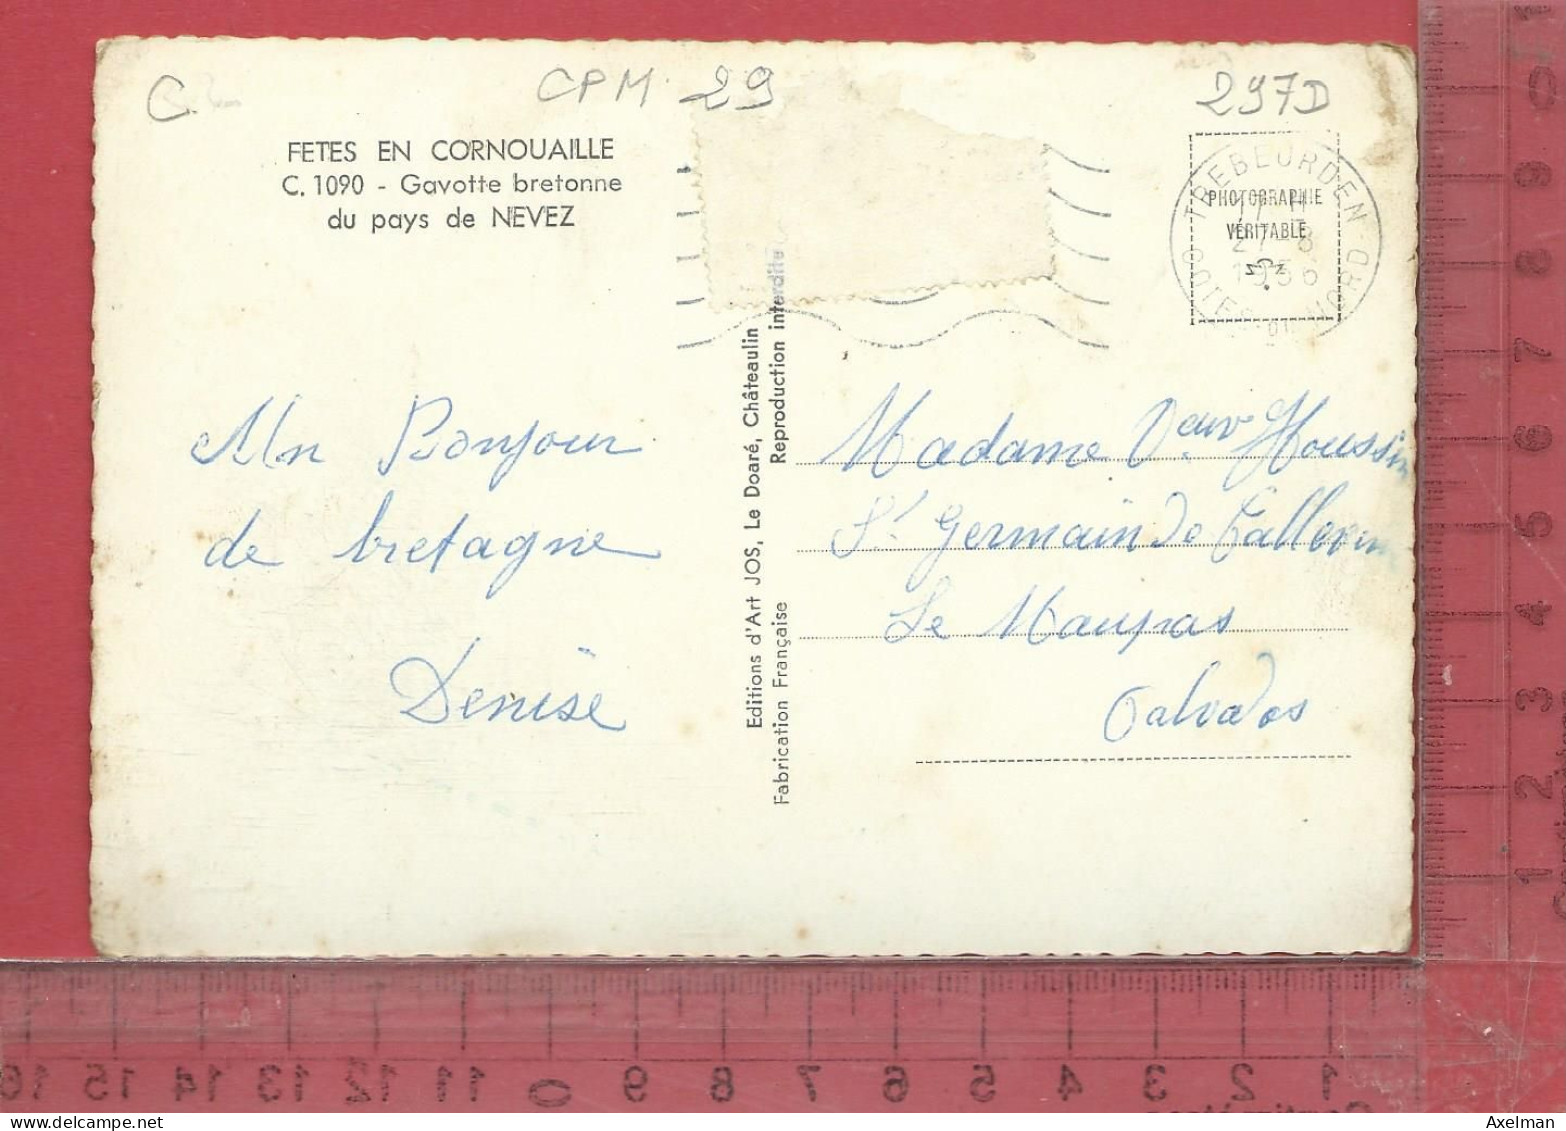 CPM 29
297D
FETES EN CORNOUAILLE
C. 1090 - Gavotte bretonne
du pays de NEVEZ
TREBEURDEN
COTES-DU-NORD
27-8
1956
PHOTOGRAPHIE
VÉRITABLE
Editions d'Art JOS, Le Doaré, Châteaulin
Fabrication Française
Reproduction interdite
Un Bonjour
de bretagne
Denise
Madame Houssin
St Germain de
Le Maupas
Calvados
1 2 3 4 5 6 7 8 9
16 15 14 13 12 11 0 9 8 7 6 5 4 3 2 1
Axelman